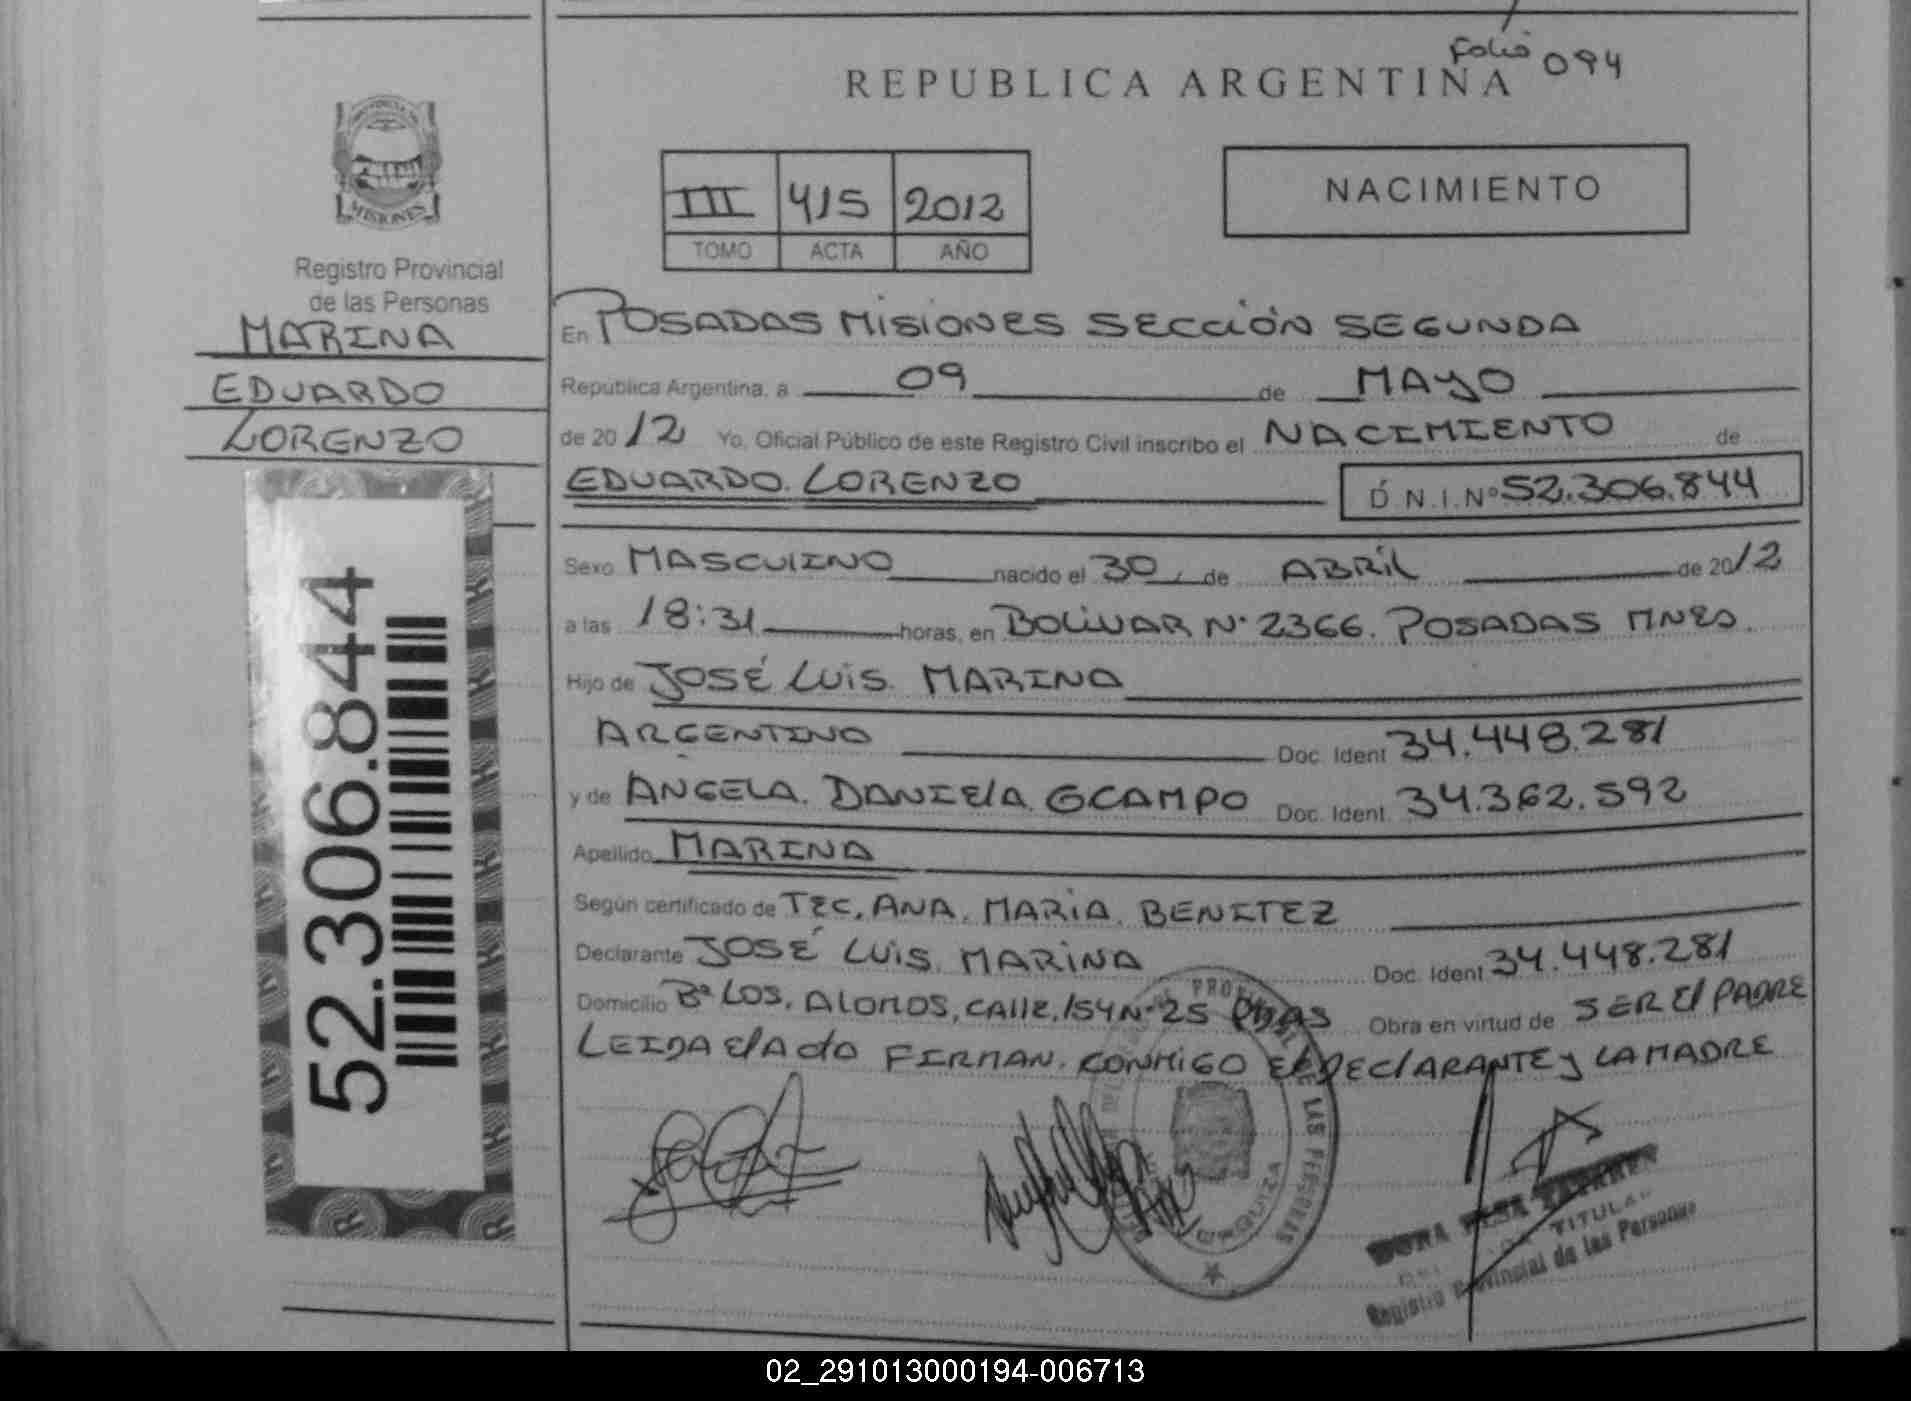 Folio 094
REPUBLICA ARGENTINA
MISIONES
Registro Provincial
de las Personas
MARINA
EDUARDO
LORENZO
52.306.844
III 415 2012
TOMO ACTA AÑO
NACIMIENTO
En POSADAS MISIONES SECCIÓN SEGUNDA
República Argentina, a 09 de MAYO
de 2012 Yo, Oficial Público de este Registro Civil inscribo el NACIMIENTO de
EDUARDO. LORENZO D.N.I.Nº 52.306.844
Sexo MASCULINO nacido el 30 de ABRIL de 2012
a las 18:31 horas, en BOLIVAR Nº 2366. POSADAS MNES.
Hijo de JOSÉ LUIS. MARINA
ARGENTINO Doc. Ident 34.448.281
y de ANGELA. DANIELA. OCAMPO Doc. Ident. 34.362.592
Apellido MARINA
Según certificado de TEC. ANA. MARIA. BENITEZ
Declarante JOSÉ LUIS. MARINA Doc. Ident 34.448.281
Domicilio Bº LOS. ALAMOS, CALLE. 154 Nº 25 PDAS Obra en virtud de SER El PADRE
LEIDA El ACTA FIRMAN. CONMIGO El DECLARANTE y LA MADRE
PROVINCIAL DE LAS PERSONAS
TITULAR
Registro Provincial de las Personas
02_291013000194-006713